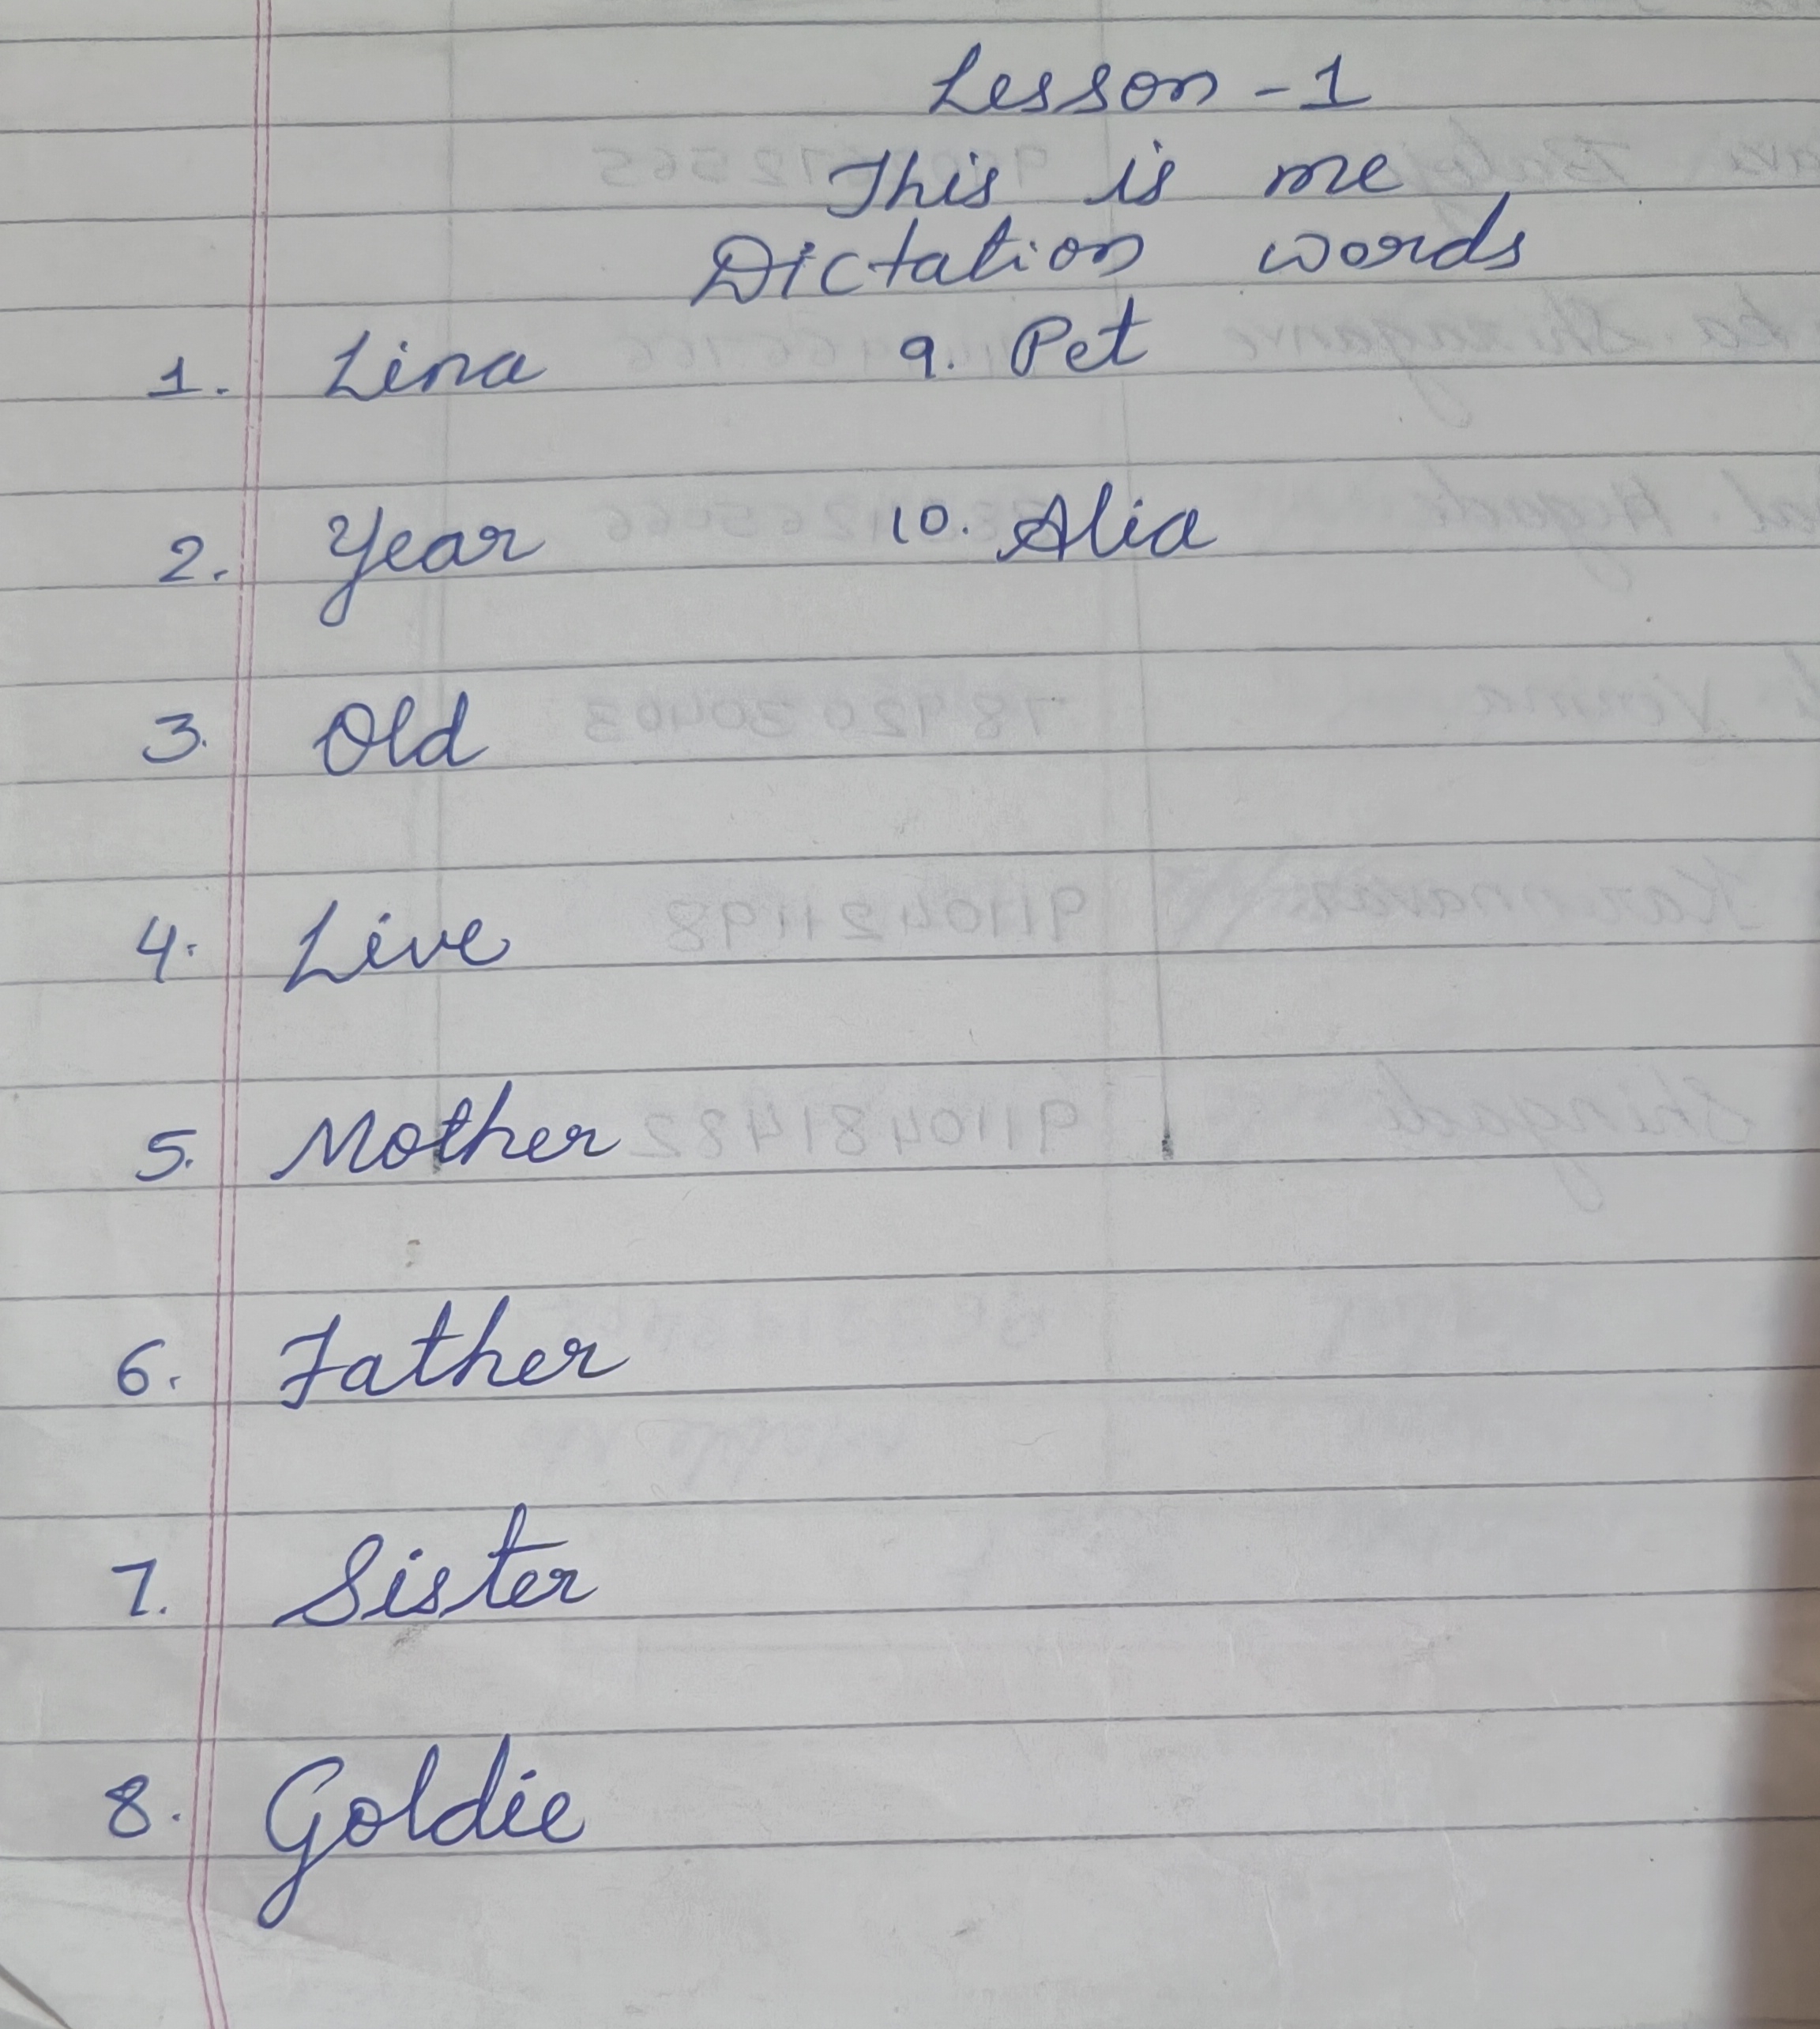 Lesson - 1
This is me
Dictation words
1. Lina
2. Year
3. Old
4. Live
5. Mother
6. Father
7. Sister
8. Goldie
9. Pet
10. Alia